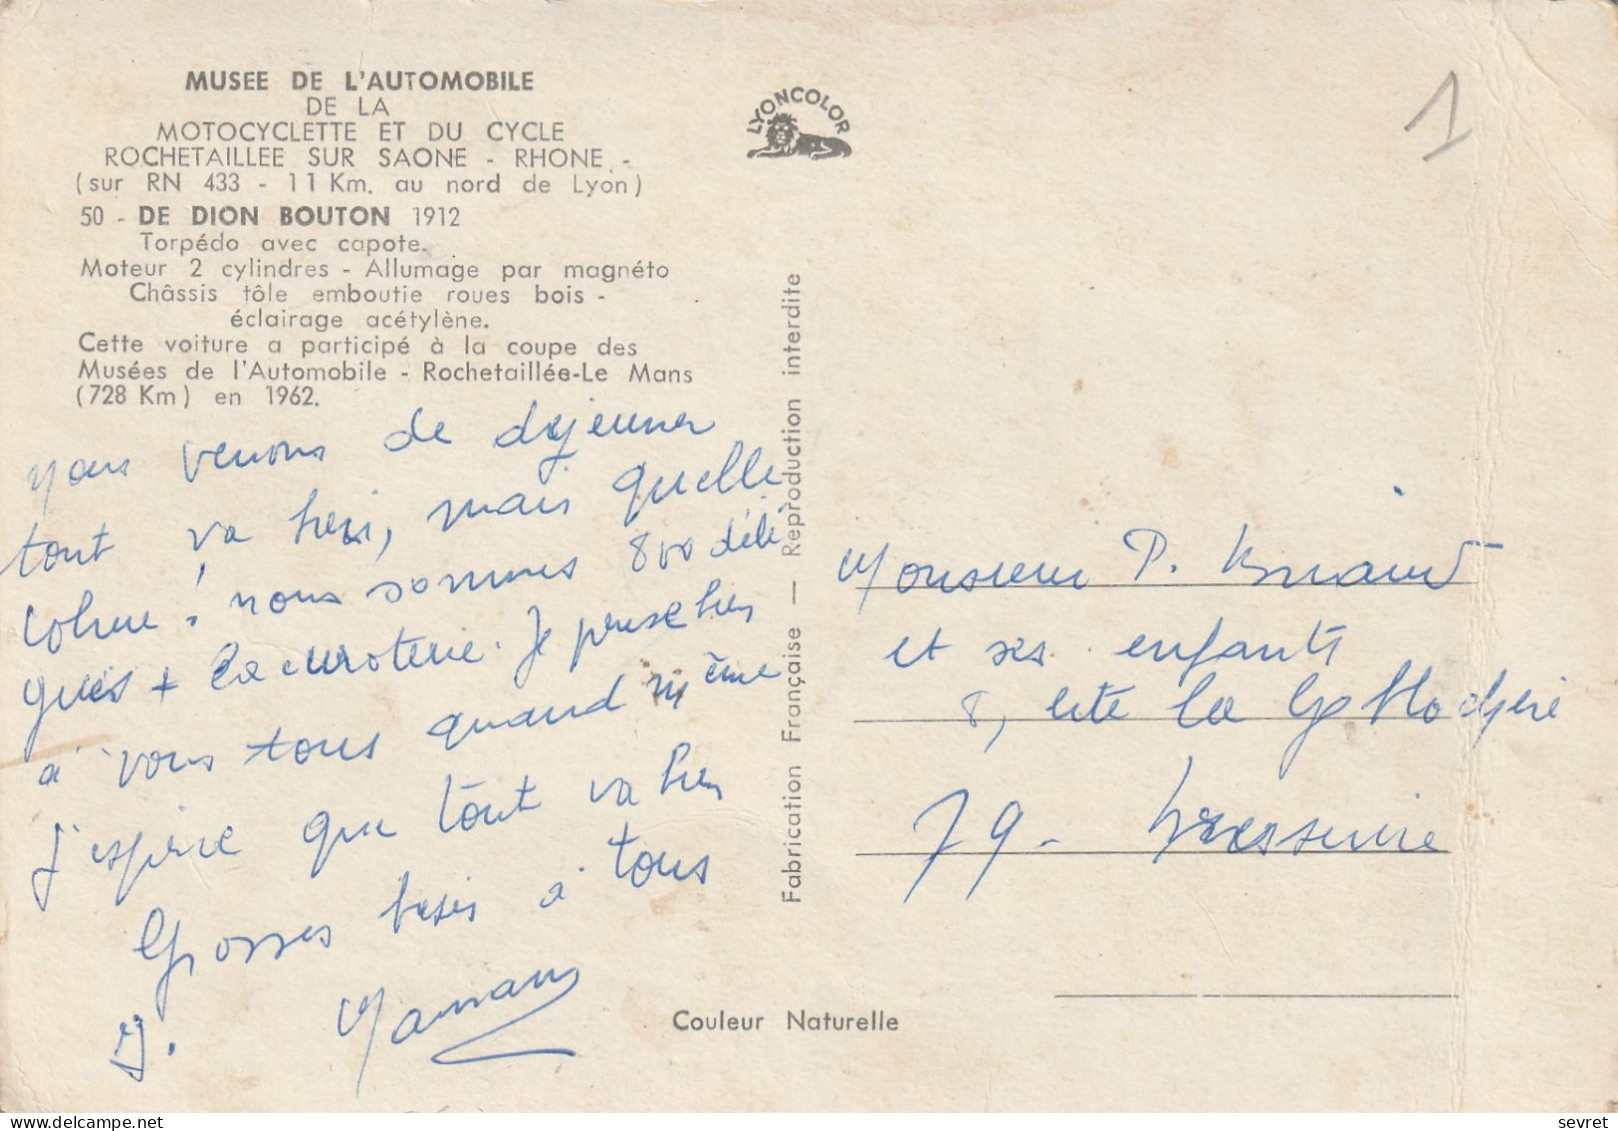 MUSEE DE L'AUTOMOBILE
DE LA
MOTOCYCLETTE ET DU CYCLE
ROCHETAILLEE SUR SAONE - RHONE -
(sur RN 433 - 11 Km. au nord de Lyon)
50 - DE DION BOUTON 1912
Torpédo avec capote.
Moteur 2 cylindres - Allumage par magnéto
Châssis tôle emboutie roues bois -
éclairage acétylène.
Cette voiture a participé à la coupe des
Musées de l'Automobile - Rochetaillée-Le Mans
(728 Km) en 1962.
Nous venons de déjeuner
tout va bien, mais quelle
cohue! nous sommes 800 délé
gués + la Je pense bien
à vous tous quand même
j'espère que tout va bien
Grosses bises à tous
J. Maman
LYONCOLOR
1
Fabrication Française — Reproduction interdite
Monsieur P. Briand
et ses enfants
8, cité la
79 - Bressuire
Couleur Naturelle
delcampe.net
sevret